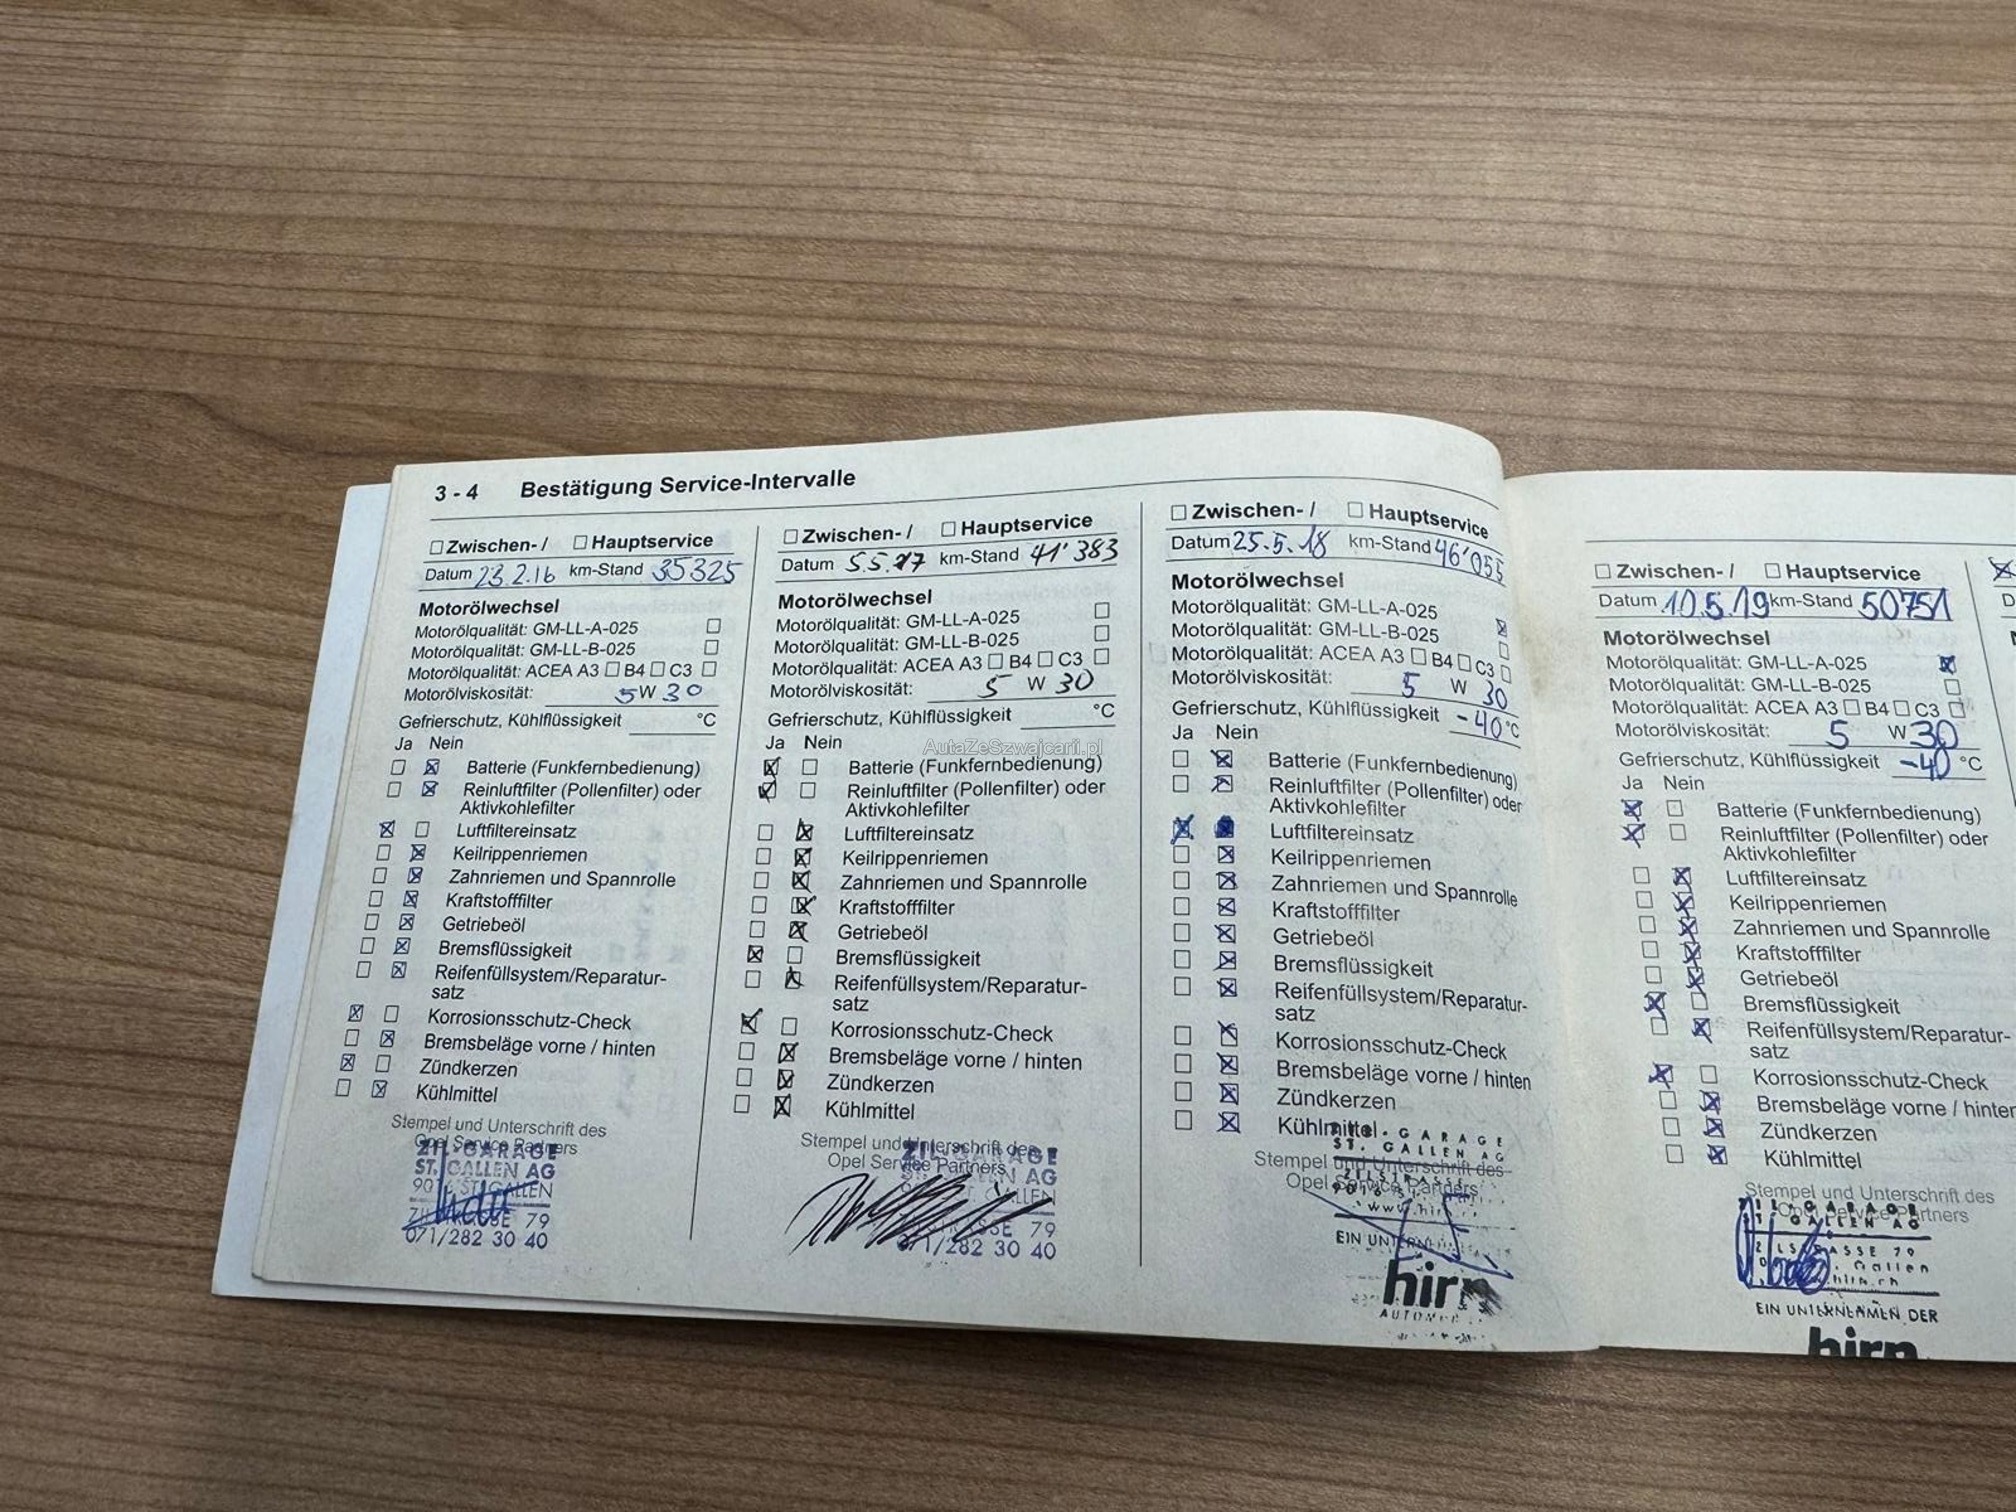 3 - 4 Bestätigung Service-Intervalle
☐ Zwischen- / ☐ Hauptservice
Datum 23.2.16 km-Stand 35325
Motorölwechsel
Motorölqualität: GM-LL-A-025 ☐
Motorölqualität: GM-LL-B-025 ☐
Motorölqualität: ACEA A3 ☐ B4 ☐ C3 ☐
Motorölviskosität: 5 W 30
Gefrierschutz, Kühlflüssigkeit °C
Ja Nein
☐ ☒ Batterie (Funkfernbedienung)
☐ ☒ Reinluftfilter (Pollenfilter) oder
Aktivkohlefilter
☒ ☐ Luftfiltereinsatz
☐ ☒ Keilrippenriemen
☐ ☒ Zahnriemen und Spannrolle
☐ ☒ Kraftstofffilter
☐ ☒ Getriebeöl
☐ ☒ Bremsflüssigkeit
☐ ☒ Reifenfüllsystem/Reparatur-
satz
☒ ☐ Korrosionsschutz-Check
☐ ☒ Bremsbeläge vorne / hinten
☒ ☐ Zündkerzen
☐ ☒ Kühlmittel
Stempel und Unterschrift des
Opel Service Partners
ZIL-GARAGE
ST. GALLEN AG
ST. GALLEN
79
071/282 30 40
☐ Zwischen- / ☐ Hauptservice
Datum 5.5.17 km-Stand 41'383
Motorölwechsel
Motorölqualität: GM-LL-A-025 ☐
Motorölqualität: GM-LL-B-025 ☐
Motorölqualität: ACEA A3 ☐ B4 ☐ C3 ☐
Motorölviskosität: 5 W 30
Gefrierschutz, Kühlflüssigkeit °C
Ja Nein
AutaZeSzwajcarii.pl
☒ ☐ Batterie (Funkfernbedienung)
☒ ☐ Reinluftfilter (Pollenfilter) oder
Aktivkohlefilter
☐ ☒ Luftfiltereinsatz
☐ ☒ Keilrippenriemen
☐ ☒ Zahnriemen und Spannrolle
☐ ☒ Kraftstofffilter
☐ ☒ Getriebeöl
☒ ☐ Bremsflüssigkeit
☐ ☒ Reifenfüllsystem/Reparatur-
satz
☒ ☐ Korrosionsschutz-Check
☐ ☒ Bremsbeläge vorne / hinten
☐ ☒ Zündkerzen
☐ ☒ Kühlmittel
Stempel und Unterschrift des
Opel Service Partners
ZIL-GARAGE
ST. GALLEN AG
79
071/282 30 40
☐ Zwischen- / ☐ Hauptservice
Datum 25.5.18 km-Stand 46'055
Motorölwechsel
Motorölqualität: GM-LL-A-025 ☒
Motorölqualität: GM-LL-B-025 ☐
Motorölqualität: ACEA A3 ☐ B4 ☐ C3 ☐
Motorölviskosität: 5 W 30
Gefrierschutz, Kühlflüssigkeit -40 °C
Ja Nein
☐ ☒ Batterie (Funkfernbedienung)
☐ ☒ Reinluftfilter (Pollenfilter) oder
Aktivkohlefilter
☒ Luftfiltereinsatz
☐ ☒ Keilrippenriemen
☐ ☒ Zahnriemen und Spannrolle
☐ ☒ Kraftstofffilter
☐ ☒ Getriebeöl
☐ ☒ Bremsflüssigkeit
☐ ☒ Reifenfüllsystem/Reparatur-
satz
☐ ☒ Korrosionsschutz-Check
☐ ☒ Bremsbeläge vorne / hinten
☐ ☒ Zündkerzen
☐ ☒ Kühlmittel
GARAGE
ST. GALLEN AG
Stempel und Unterschrift des
Opel Service Partners
ZILSTRASSE
EIN
hirn
☐ Zwischen- / ☐ Hauptservice
Datum 10.5.19 km-Stand 50751
Motorölwechsel
Motorölqualität: GM-LL-A-025 ☒
Motorölqualität: GM-LL-B-025 ☐
Motorölqualität: ACEA A3 ☐ B4 ☐ C3 ☐
Motorölviskosität: 5 W 30
Gefrierschutz, Kühlflüssigkeit -40 °C
Ja Nein
☒ ☐ Batterie (Funkfernbedienung)
☒ ☐ Reinluftfilter (Pollenfilter) oder
Aktivkohlefilter
☐ ☒ Luftfiltereinsatz
☐ ☒ Keilrippenriemen
☐ ☒ Zahnriemen und Spannrolle
☐ ☒ Kraftstofffilter
☐ ☒ Getriebeöl
☒ ☐ Bremsflüssigkeit
☐ ☒ Reifenfüllsystem/Reparatur-
satz
☒ ☐ Korrosionsschutz-Check
☐ ☒ Bremsbeläge vorne / hinten
☐ ☒ Zündkerzen
☐ ☒ Kühlmittel
Stempel und Unterschrift des
Opel Service Partners
ST. GALLEN AG
79
Gallen
EIN UNTERNEHMEN DER
hirn